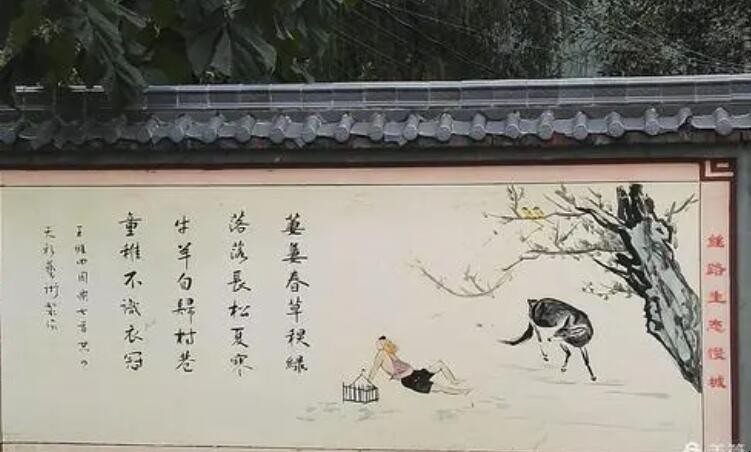 萋萋春草秋綠
落落長松夏寒
牛羊自歸村巷
童稚不識衣冠
王維田園樂七首其四
天彩藝術製作
絲路生态慢城